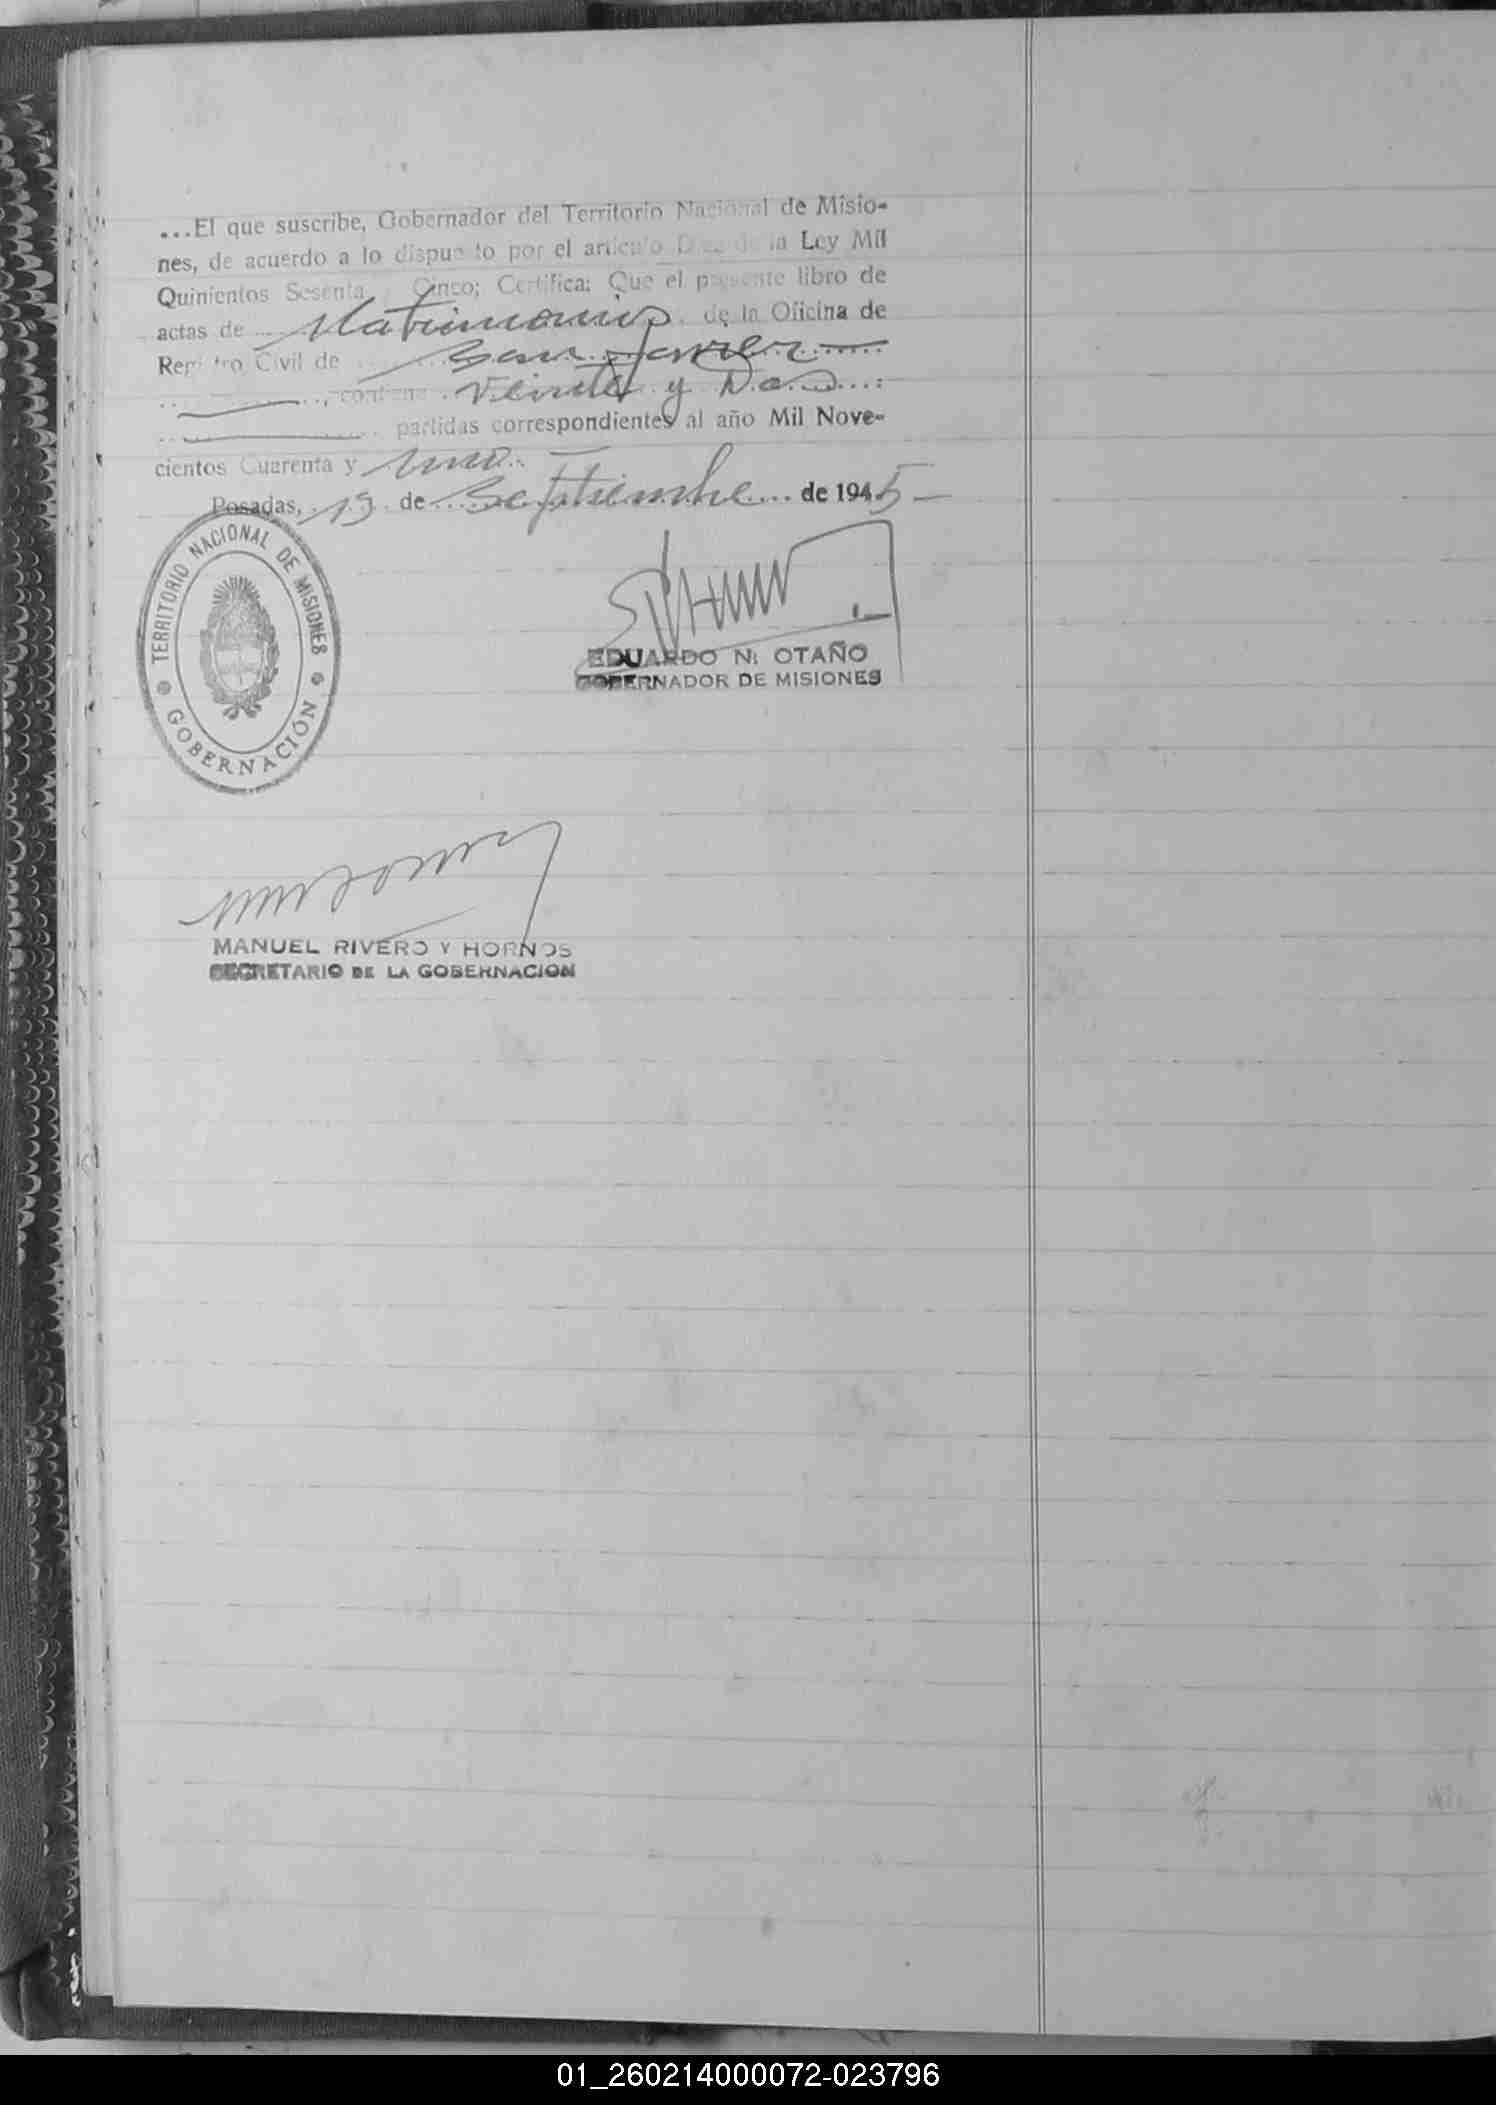 ...El que suscribe, Gobernador del Territorio Nacional de Misio-
nes, de acuerdo a lo dispuesto por el artículo Diez de la Ley Mil
Quinientos Sesenta y Cinco; Certifica: Que el presente libro de
actas de Matrimonios de la Oficina de
Registro Civil de San Javier
contiene Veinte y Dos
partidas correspondientes al año Mil Nove-
cientos Cuarenta y uno.
Posadas, 19 de Septiembre de 1945
TERRITORIO NACIONAL DE MISIONES
GOBERNACIÓN
EDUARDO N. OTAÑO
GOBERNADOR DE MISIONES
MANUEL RIVERO Y HORNOS
SECRETARIO DE LA GOBERNACION
01_260214000072-023796